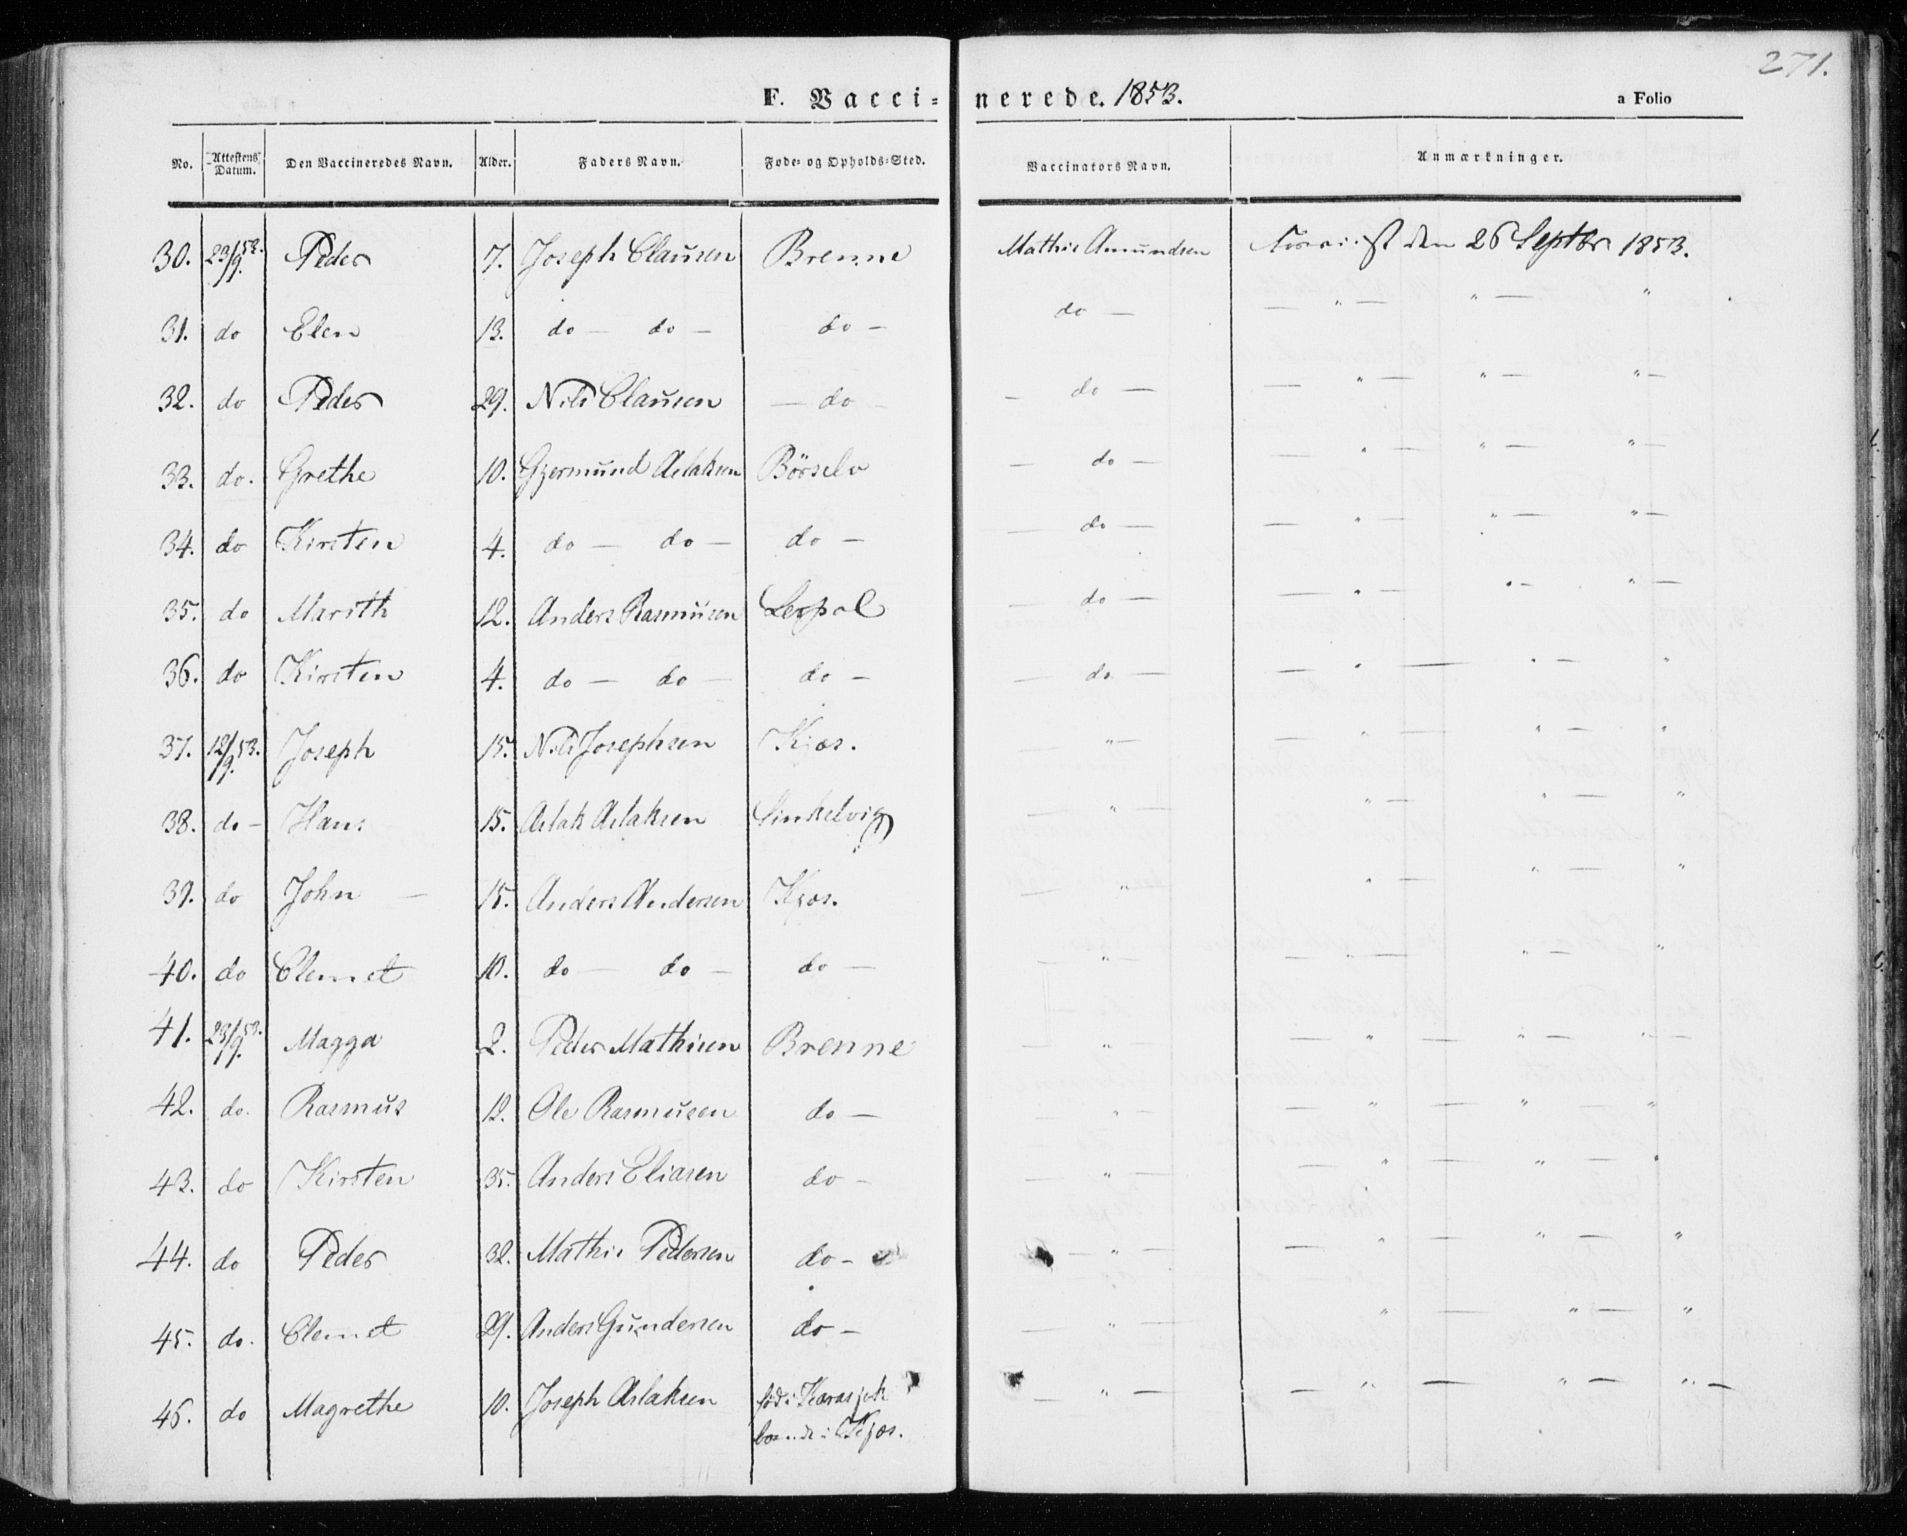 271.
F. Vacci=nerede. 1853.
a Folio
No. Attestens Datum. Den Vaccineredes Navn. Alder. Faders Navn. Føde= og Opholds=Sted. Vaccinators Navn. Anmærkninger.
30. 23/9 53. Peder 7. Joseph Clausen Brenne Mathis Amundsen den 26 Septbr 1853.
31. do Elen 13. do — do — do — do — — " — " — "
32. do Peder 29. Nils Clausen — do — — do — — " — " — " —
33. do. Grethe 10. Gjermund Aslaksen Börselv — do — — " — " — " —
34. do Kirsten 4. do — do — do — — do — — " — " — " —
35. do Marith 12. Anders Rasmusen Leopol — do — — " — " — " —
36. do Kirsten 4. do — do — do — — do — — " — " — "
37. 12/9 53. Joseph 15. Nils Josephsen Kjæs. — " — — " — " — "
38. do — Hans 15. Aslak Aslaksen Sinkelvig — " — " — " — "
39. do John — 15. Anders Andersen Kjæs. — " " — " — "
40. do Clemet 10. do — do — do — — " — — " — " — "
41. 23/9 53. Magga 2. Peder Mathisen Brenne — " — " — " — " —
42. do. Rasmus 12. Ole Rasmusen do — " — — " — " — "
43. do Kirsten 35. Anders Eliasen do — — " — — " — " — "
44. do Peder 32. Mathis Pedersen do — — " — — " — " — "
45. do. Clemet 29. Anders Gundersen do — — " — " — " — "
46. do Magrethe 10. Joseph Aslaksen född i Karasjok — " — — " — " — " —
boende i Kjæs.